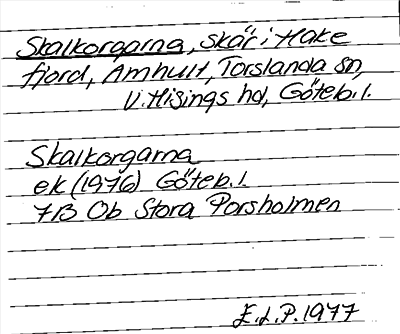 Skalkorgarna, skär i Hake
fjord, Amhult, Torslanda sn,
V. Hisings hd, Göteb. l.
Skalkorgarna
ek (1976) Göteb. l.
7B 0b Stora Porsholmen
E.L.P. 1977